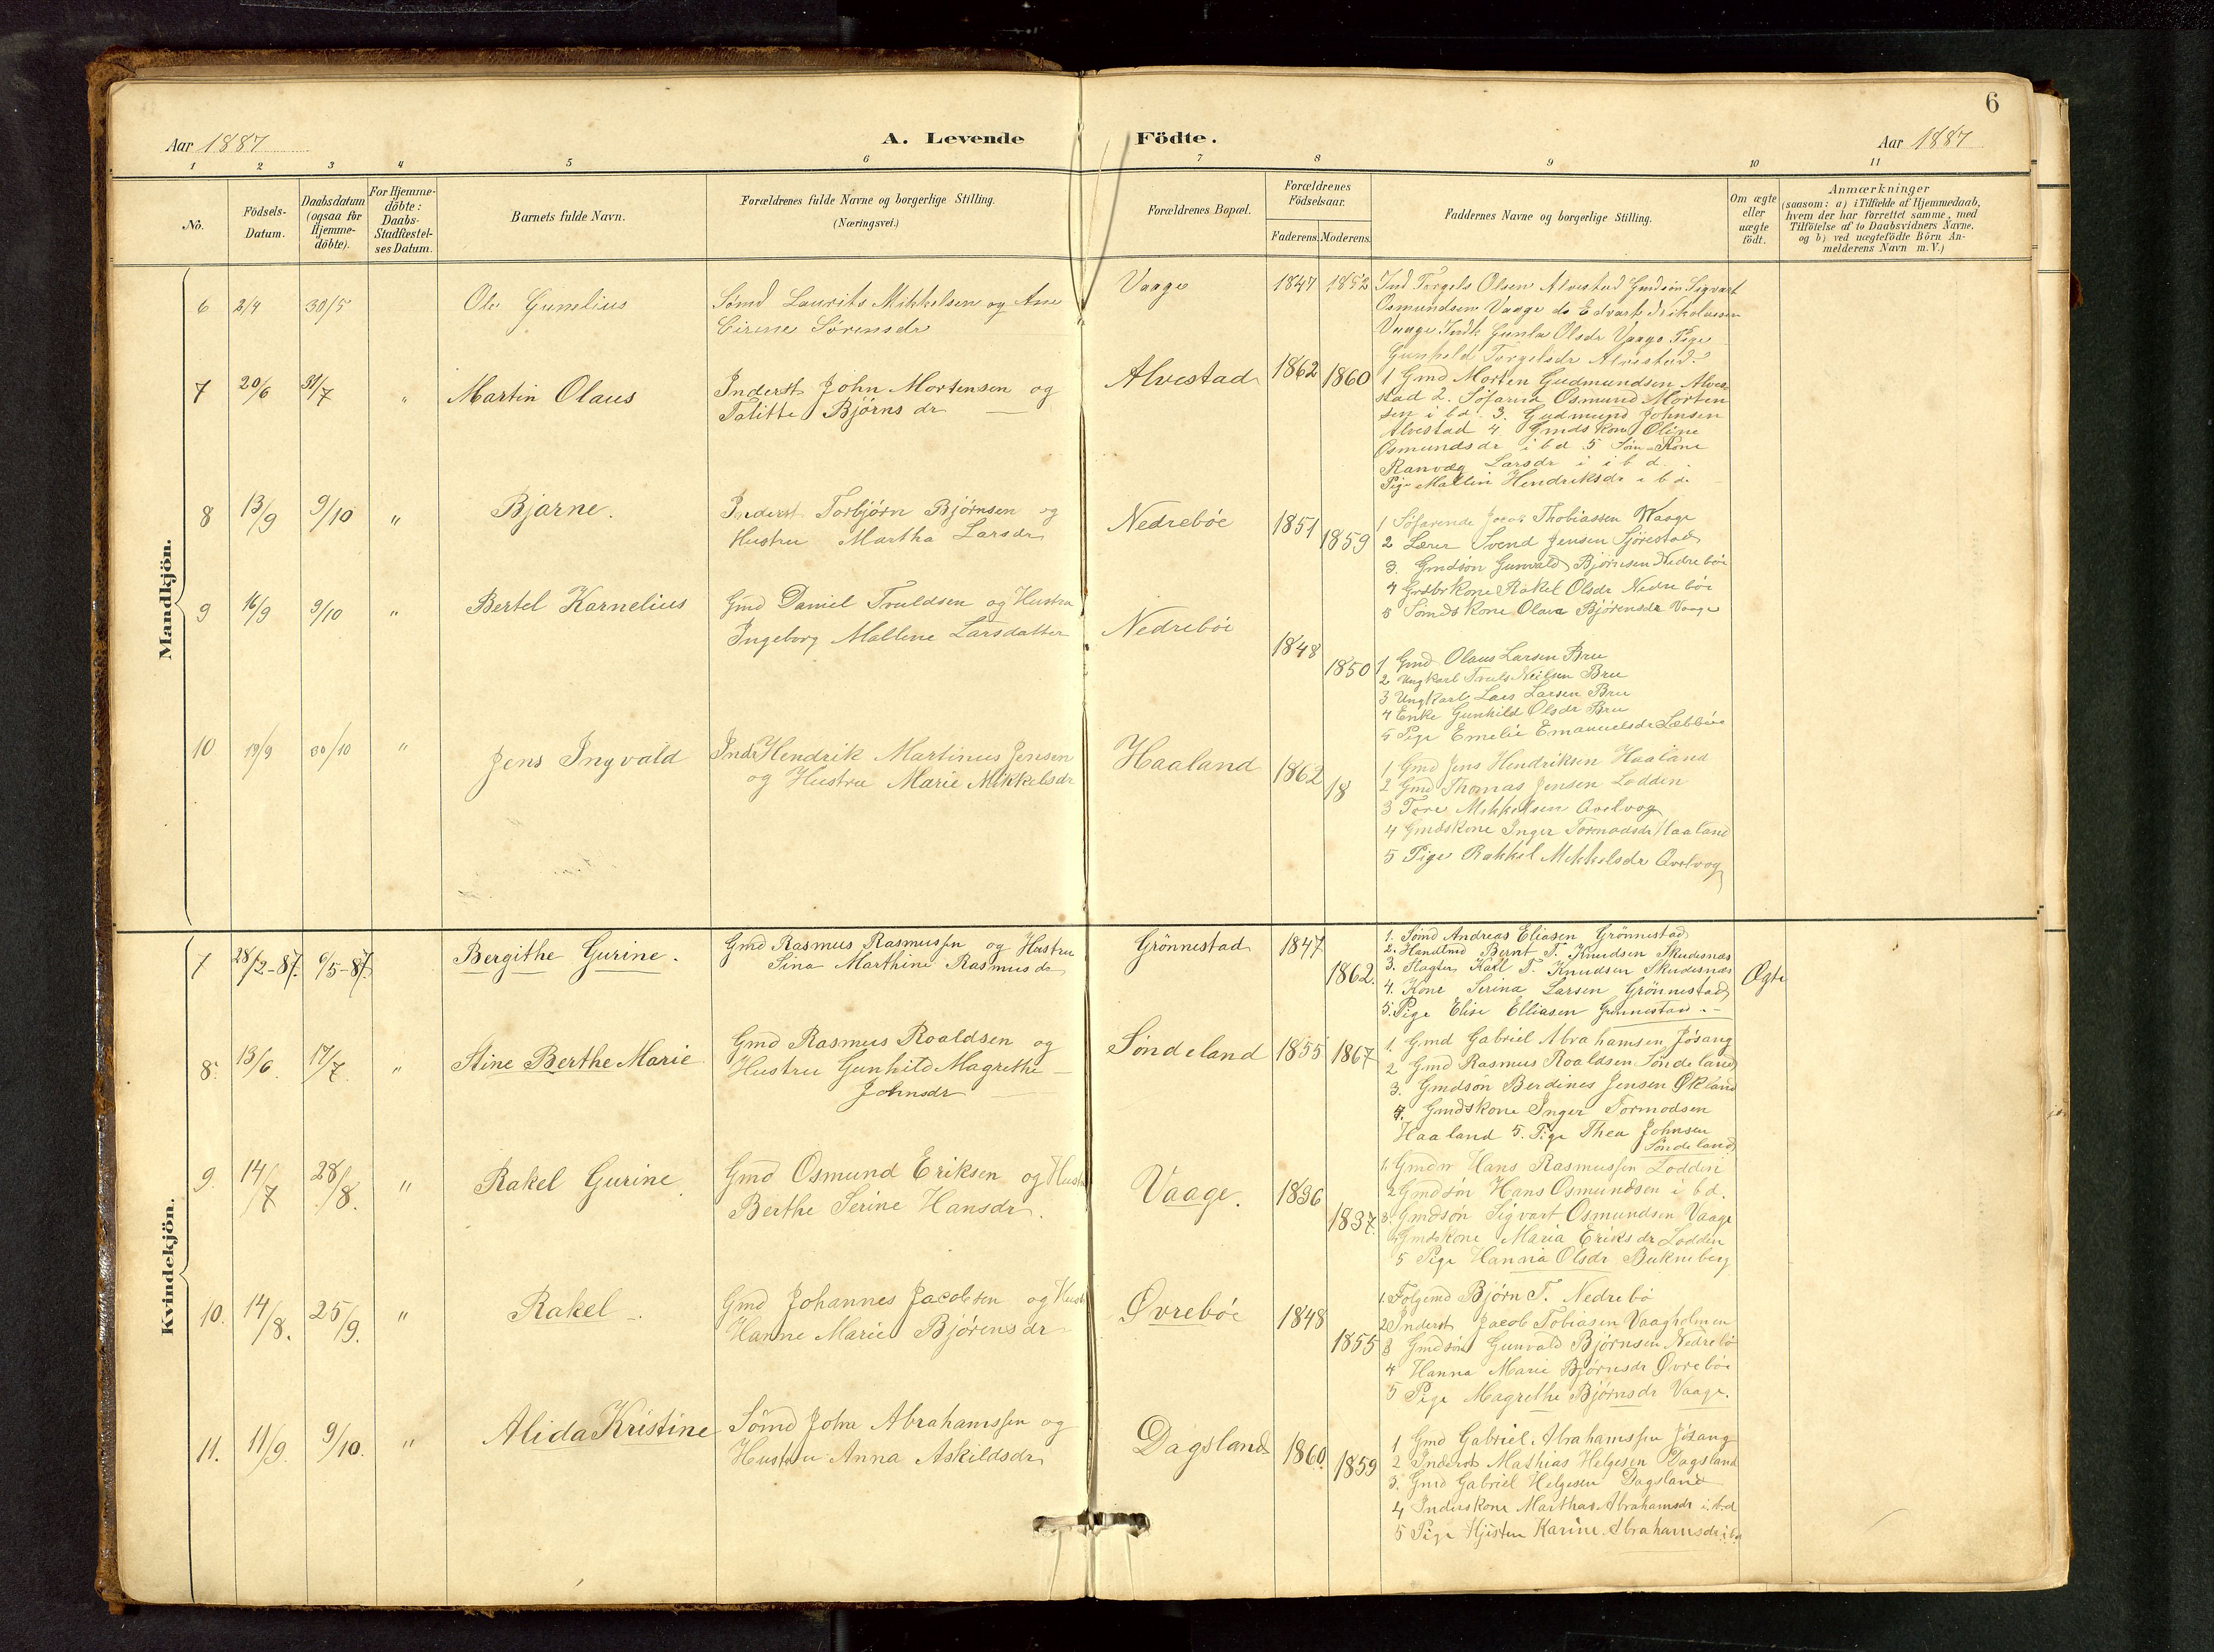 6
Aar 1887
A. Levende Födte.
Aar 1887
1 2 3 4 5 6 7 8 9 10 11
No.
Födsels-
Datum.
Daabsdatum
(ogsaa for
Hjemme-
döbte).
For Hjemme-
döbte:
Daabs-
Stadfæstel-
ses Datum.
Barnets fulde Navn.
Forældrenes fulde Navne og borgerlige Stilling.
(Næringsvei.)
Forældrenes Bopæl.
Forældrenes
Födselsaar.
Faderens. Moderens.
Faddernes Navne og borgerlige Stilling.
Om ægte
eller
uægte
födt.
Anmærkninger
(saasom: a) i Tilfælde af Hjemmedaab,
hvem der har forrettet samme, med
Tilföielse af to Daabsvidners Navne.
og b) ved uægtefödte Börn An-
melderens Navn m. V.)
Mandkjön.
6 2/4 30/5 Ole Gunelius
Sømd Laurits Mikkelsen og Ane
Sørensdr
Vaage 1847 1852
Ind Torgels Olsen Alvestad Gmdsøn Sigvart
Osmundsen Vaage do Edvart Nikolaisen
Vaage Indk Olsdr Vaage Pige
Gunhild Torgelsdr Alvestad
7 20/6 31/7 " Martin Olaus
Inderst John Mortensen og
Talitte Bjørnsdr
Alvestad 1862 1860
1 Gmd Morten Gudmundsen Alve-
stad 2. Söfarnd Osmund Morten
sen i bd. 3. Gudmund Johnsen
Alvestad 4 Gmdskone Oline
Osmundsdr i bd 5 Kone
Ranvæg Larsdr i i b d.
Pige Mallin Hendriksdr i b d
8 13/9 9/10 " Bjarne.
Inderst Torbjørn Bjørnsen og
Hustru Martha Larsdr
Nedrebøe 1851 1859
1 Söfarende Jacob Thobiassen Waage
2 Lærer Svend Jensen Sjörestad
3. Gmdsøn Gunvald Bjørnsen Nedrebøe
4 Kone Rakel Olsdr Nedrebøe
5 Sømds Kone Olava Bjørensdr Vaage
9 16/9 9/10 " Bertel Karnelius
Gmd Daniel Truldsen og Hustru
Ingeborg Mallene Larsdatter
Nedrebøe 1848 1850
1 Gmd Olaus Larsen Bru
2 Ungkarl Truls Neilsen Bru
3 Ungkarl Lars Larsen Bru
4 Enke Gunhild Olsdr Bru
5 Pige Emelie Emanuelsdr
10 19/9 30/10 " Jens Ingvald
Indr Hendrik Martinus Jensen
og Hustru Marie Mikkelsdr
Haaland 1862 18
1 Gmd Jens Hendriksen Haaland
2 Gmd Thomas Jensen Lodden
3 Tore Mikkelsen Qvelvog
4 Gmdskone Inger Tormodsdr Haaland
5 Pige Rakkel Mikkelsdr Qvelvog
Kvindekjön.
7 28/2-87. 9/5-87. Bergithe Gurine.
Gmd Rasmus Rasmussen og Hustru
Sina Marthine Rasmusdr
Grönnestad 1847 1862.
1. Sømd Andreas Eliasen Grönnestad
2. Handlmd Bernt T. Knudsen Skudesnæs
3. Slagter Karl T. Knudsen Skudesnæs
4. Kone Serina Larsen Grönnestad
5. Pige Elise Elliasen Grønnestad
Ægte
8. 13/6 17/7. " Stine Berthe Marie
Gmd Rasmus Roaldsen og
Hustru Gunhild Magrethe
Johnsdr
Søndeland 1855 1867
1. Gmd Gabriel Abrahamsen Jösang
2 Gmd Rasmus Roaldsen Søndeland
3. Gmdsøn Berdines Jensen Økland
4. Gmdskone Inger Tormodsen
Haaland 5. Pige Thea Johnsen
Søndeland
9. 14/7 28/8. " Rakel Gurine
Gmd Osmund Eriksen og Hustru
Berthe Serine Hansdr.
Vaage. 1836 1837.
1. Gmdn Hans Rasmussen Loddin
2 Gmdsøn Hans Osmundsen i bd.
3. Gmdsøn Sigvart Osmundsen Vaage
Gmdskone Maria Eriksdr Lodden
5 Pige Hanna Olsdr Bukneberg
10. 14/8. 25/9. " Rakel
Gmd Johannes Jacobsen og Hust
Hanne Marie Bjørensdr
Øvrebøe 1848 1855
1. Folgemd Bjørn T. Nedrebø
2 Inderst Jacob Tobiasen Vaagholmen
3 Gmdsøn Gunvald Bjørnsen Nedrebø
4 Hanna Marie Bjørnsdr Øvrebøe
5 Pige Magrethe Bjørnsdr Vaage.
11. 11/9. 9/10. " Alida Kristine
Sömd John Abrahamssen og
Hustru Anna Askildsdr
Dagsland 1860. 1859
1 Gmd Gabriel Abrahamssen Jösang
2 Inderst Mathias Helgesen Dagsland
3. Gmd Gabriel Helgesen Dagsland
4 Inderskone Marthas Abrahamsdr i bd
5 Pige Karine Abrahamsdr i bd